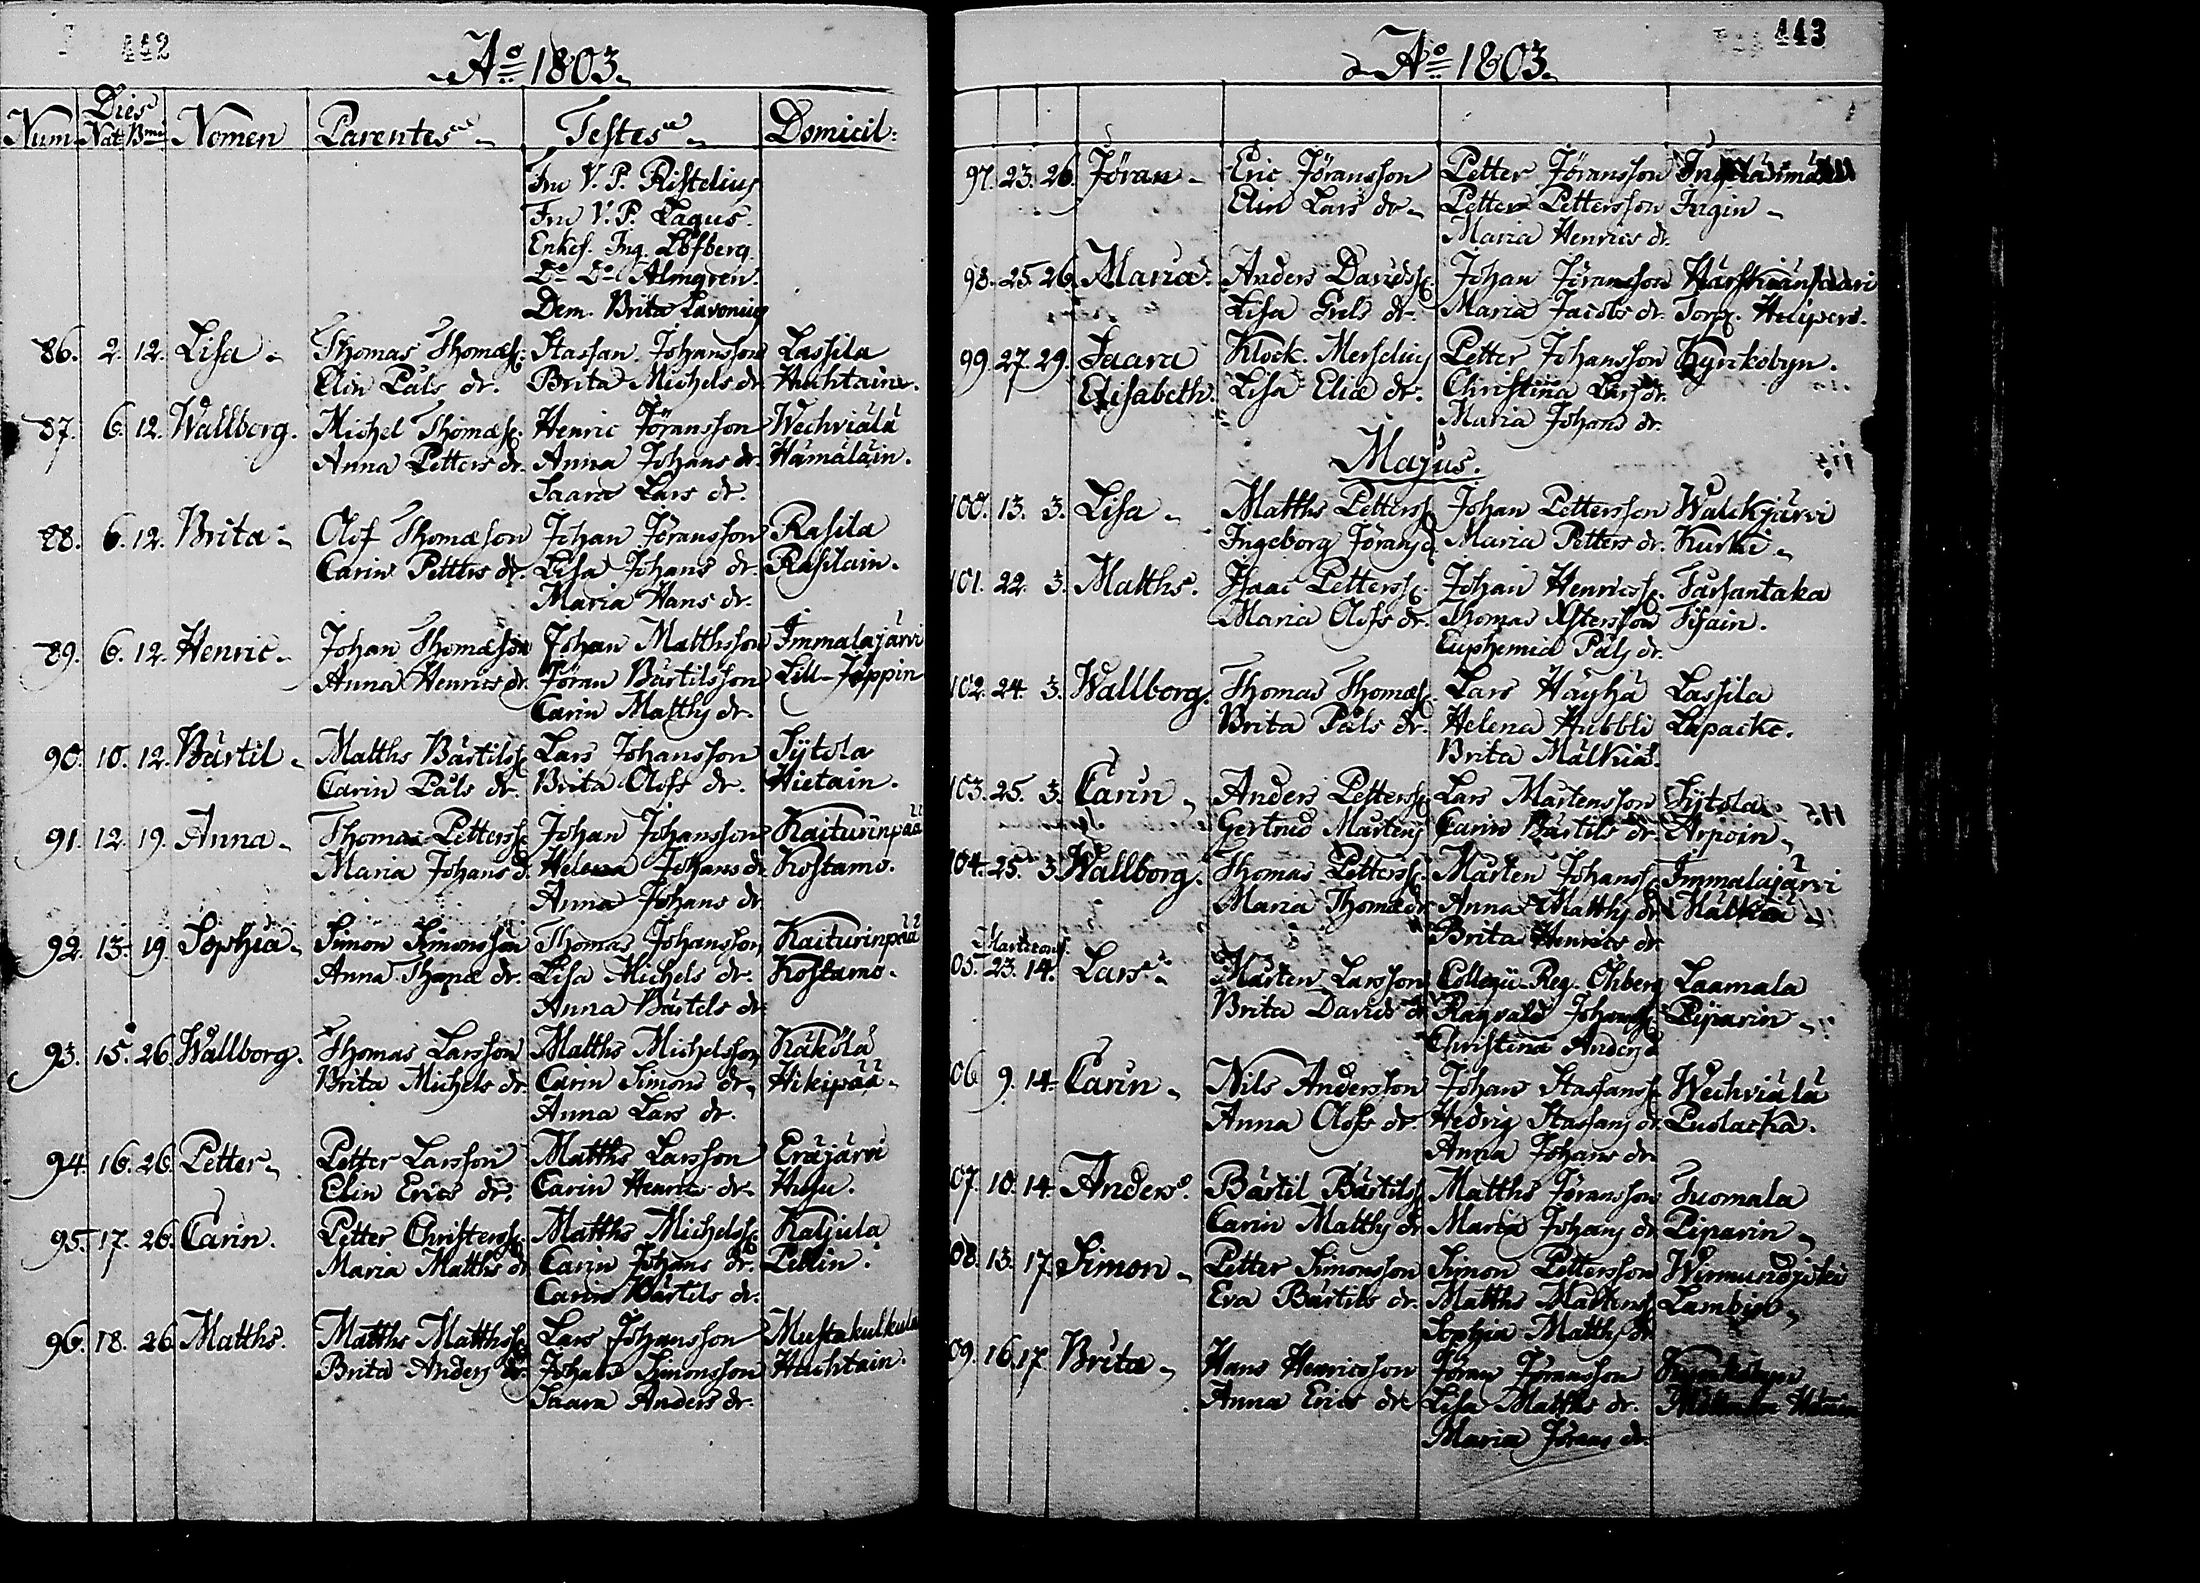 442
Aº 1803.
Num. Dies Nat. Bmi Nomen Parentes Testes Domicil:
Fru V. P. Ristelius
Fru V. P. Lagus.
Enkef. Ing. Löfberg
Dº Dº Almgren.
Dem. Brita Lavonius
86. 2. 12. Lisa Thomas Thomæss. Staffan Johansson Lassila
Elin Påls dr. Brita Michels dr. Huhtain.
87. 6. 12. Wallborg. Michel Thomæss. Henric Jöransson Wechviälä
Anna Petters dr. Anna Johans dr. Hämäläin.
Saara Lars dr.
88. 6. 12. Brita Olof Thomæson Johan Jöransson Rasila
Carin Petters dr. Lisa Johans dr. Rasilain.
Maria Hans dr.
89. 6. 12. Henric Johan Thomæson Johan Matthsson Immalajärvi
Anna Henrics dr. Jöran Bärtilsson Lill-Jäppin
Carin Matths dr.
90. 10. 12. Bärtil Matths Bärtilss. Lars Johansson Sÿtola
Carin Påls dr. Brita Olofs dr. Hietain.
91. 12. 19. Anna Thomas Petterss. Johan Johansson Kaiturinpää
Maria Johans d. Helena Johans dr Kostamo.
Anna Johans dr
92. 13. 19. Sophia Simon Simonsson Thomas Johansson Kaiturinpää
Anna Thomæ dr. Lisa Michels dr. Kostamo.
Anna Bärtels dr
93. 15. 26. Wallborg. Thomas Larsson Matths Michelsson Käkölä
Brita Michels dr. Carin Simons dr. Hikipää
Anna Lars dr.
94. 16. 26. Petter Petter Larsson Matths Larsson Eräjärvi
Elin Erics dr. Carin Henrics dr. Huju.
95. 17. 26. Carin. Petter Christerss. Matths Michelss. Katjula
Maria Matths dr Carin Johans dr. Pellin.
Carin Bärtils dr.
96. 18. 26. Matths. Matths Matthss. Lars Johansson Mustakulkula
Brita Anders dr. Johan Simonsson Huchtain.
Saara Anders dr.
443
Aº 1803.
97. 23. 26. Jöran Eric Jöransson Petter Jöransson
Elin Lars dr. Petter Pettersson Ingin
Maria Henrics dr.
98. 25. 26. Maria Anders Davidss. Johan Jöransson Härskiänsaari
Lisa Grels dr. Maria Jacobs dr. Torp.
99. 27. 29. Saara Klock. Merselius Petter Johansson Kyrkobyn.
Elisabeth. Lisa Eliæ dr. Christina Lars dr.
Maria Johans dr.
Majus.
100. 13. 3. Lisa Matths Petterss. Johan Pettersson Walckjärvi
Ingeborg Jörans d. Maria Petters dr. Kurki
101. 22. 3. Matths. Isaac Petterss. Johan Henricss. Tarsantaka
Maria Olofs dr. Thomas Ystersson Tisain.
Euphemia Påls dr.
102. 24. 3. Wallborg. Thomas Thomæss. Lars Häyhä Lassila
Brita Påls dr. Helena Hubbli Lapacke.
Brita Mälkiä.
103. 25. 3. Carin Anders Petterss. Lars Mårtensson Sÿtola
Gertrud Mårtens Carin Bärtils dr. Arpoin
104. 25. 3. Wallborg. Thomas Petterss. Mårten Johanss. Immalajärvi
Maria Thomæ dr Anna Matths dr Mälkiä
Brita Henrics dr
Martii
05. 23. 14. Lars Mårten Larsson Collegii Reg. Öhberg Laamala
Brita Davids dr Ragvald Johanss. Piparin
Christina Anders d
06. 9. 14. Carin Nils Andersson Johan Staffanss. Wechviälä
Anna Olofs dr. Hedvig Staffans dr. Puolacka.
Anna Johans dr
07. 10. 14. Anders. Bärtil Bärtilss. Matths Jöransson Tuomala
Carin Matths dr Maria Johans dr. Piparin
08. 13. 17. Simon Petter Simonsson Simon Pettersson
Eva Bärtils dr. Matths Mårtens
Sophia Matths dr
09. 16. 17. Brita Hans Henricsson Jöran Jöransson Kyrckobyn
Anna Erics dr. Lisa Matths dr.
Maria Jörans dr.